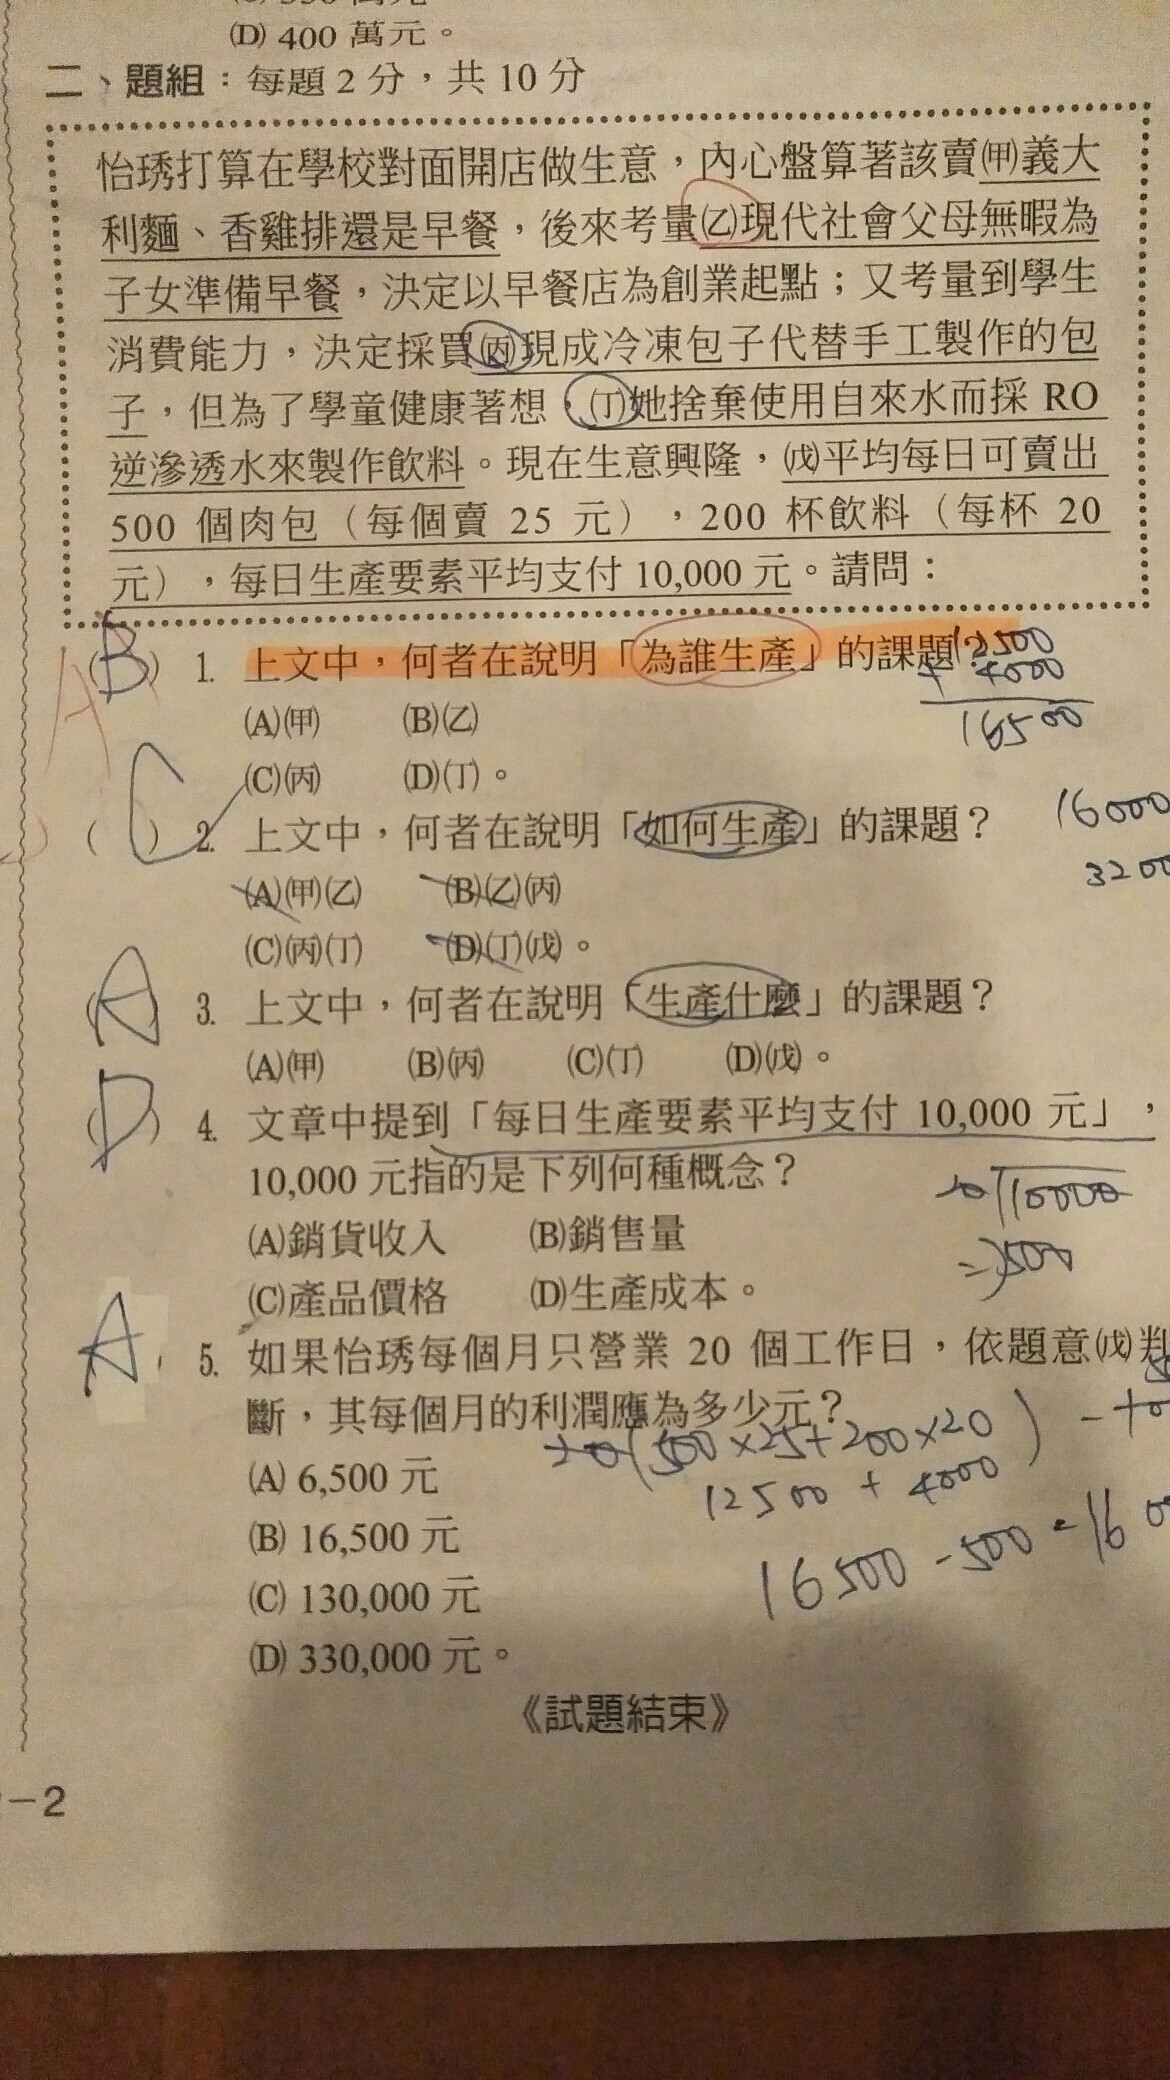 (D) 400 萬元。
二、題組：每題 2 分，共 10 分
怡琇打算在學校對面開店做生意，內心盤算著該賣(甲)義大
利麵、香雞排還是早餐，後來考量(乙)現代社會父母無暇為
子女準備早餐，決定以早餐店為創業起點；又考量到學生
消費能力，決定採買(丙)現成冷凍包子代替手工製作的包
子，但為了學童健康著想，(丁)她捨棄使用自來水而採 RO
逆滲透水來製作飲料。現在生意興隆，(戊)平均每日可賣出
500 個肉包（每個賣 25 元），200 杯飲料（每杯 20
元），每日生產要素平均支付 10,000 元。請問：
(B) 1. 上文中，何者在說明「為誰生產」的課題？
12500
+ 4000
16500
A
(A)(甲) (B)(乙)
(C)(丙) (D)(丁)。
(C) 2. 上文中，何者在說明「如何生產」的課題？
16000
3200
(A)(甲)(乙) (B)(乙)(丙)
(C)(丙)(丁) (D)(丁)(戊)。
(A) 3. 上文中，何者在說明「生產什麼」的課題？
(A)(甲) (B)(丙) (C)(丁) (D)(戊)。
(D) 4. 文章中提到「每日生產要素平均支付 10,000 元」，
10,000 元指的是下列何種概念？
20 10000
=500
(A)銷貨收入 (B)銷售量
(C)產品價格 (D)生產成本。
A 5. 如果怡琇每個月只營業 20 個工作日，依題意(戊)判
斷，其每個月的利潤應為多少元？
20(500×25+200×20) -
12500 + 4000
16500 - 500 =
(A) 6,500 元
(B) 16,500 元
(C) 130,000 元
(D) 330,000 元。
《試題結束》
－2